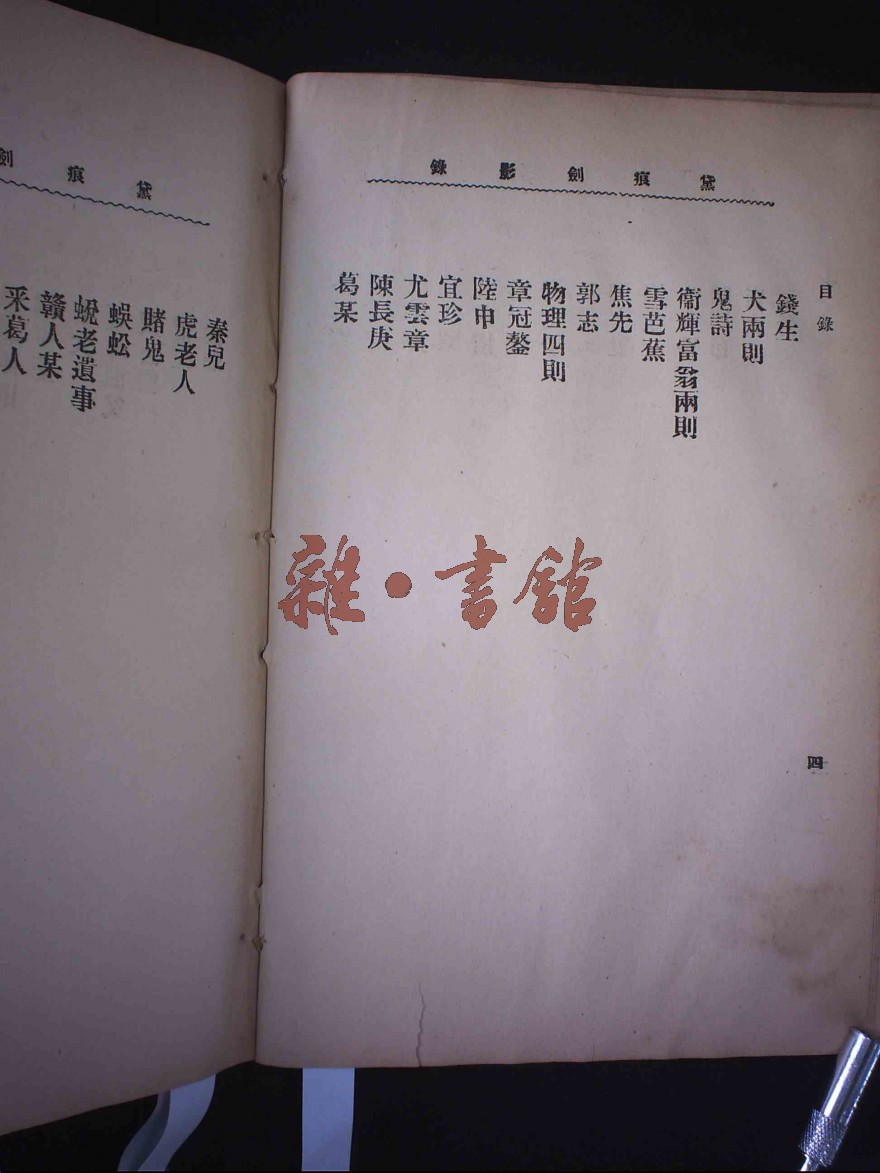 黛痕劍影錄
目錄
錢生
犬兩則
鬼詩
衞輝富翁兩則
雪芭蕉
焦先
郭志
物理四則
章冠鏊
陸申
宜珍
尤雲章
陳長庚
葛某
四
黛痕劍
秦兒
虎老人
賭鬼
蜈蚣
蛻老遺事
贛人某
釆葛人
雜·書館